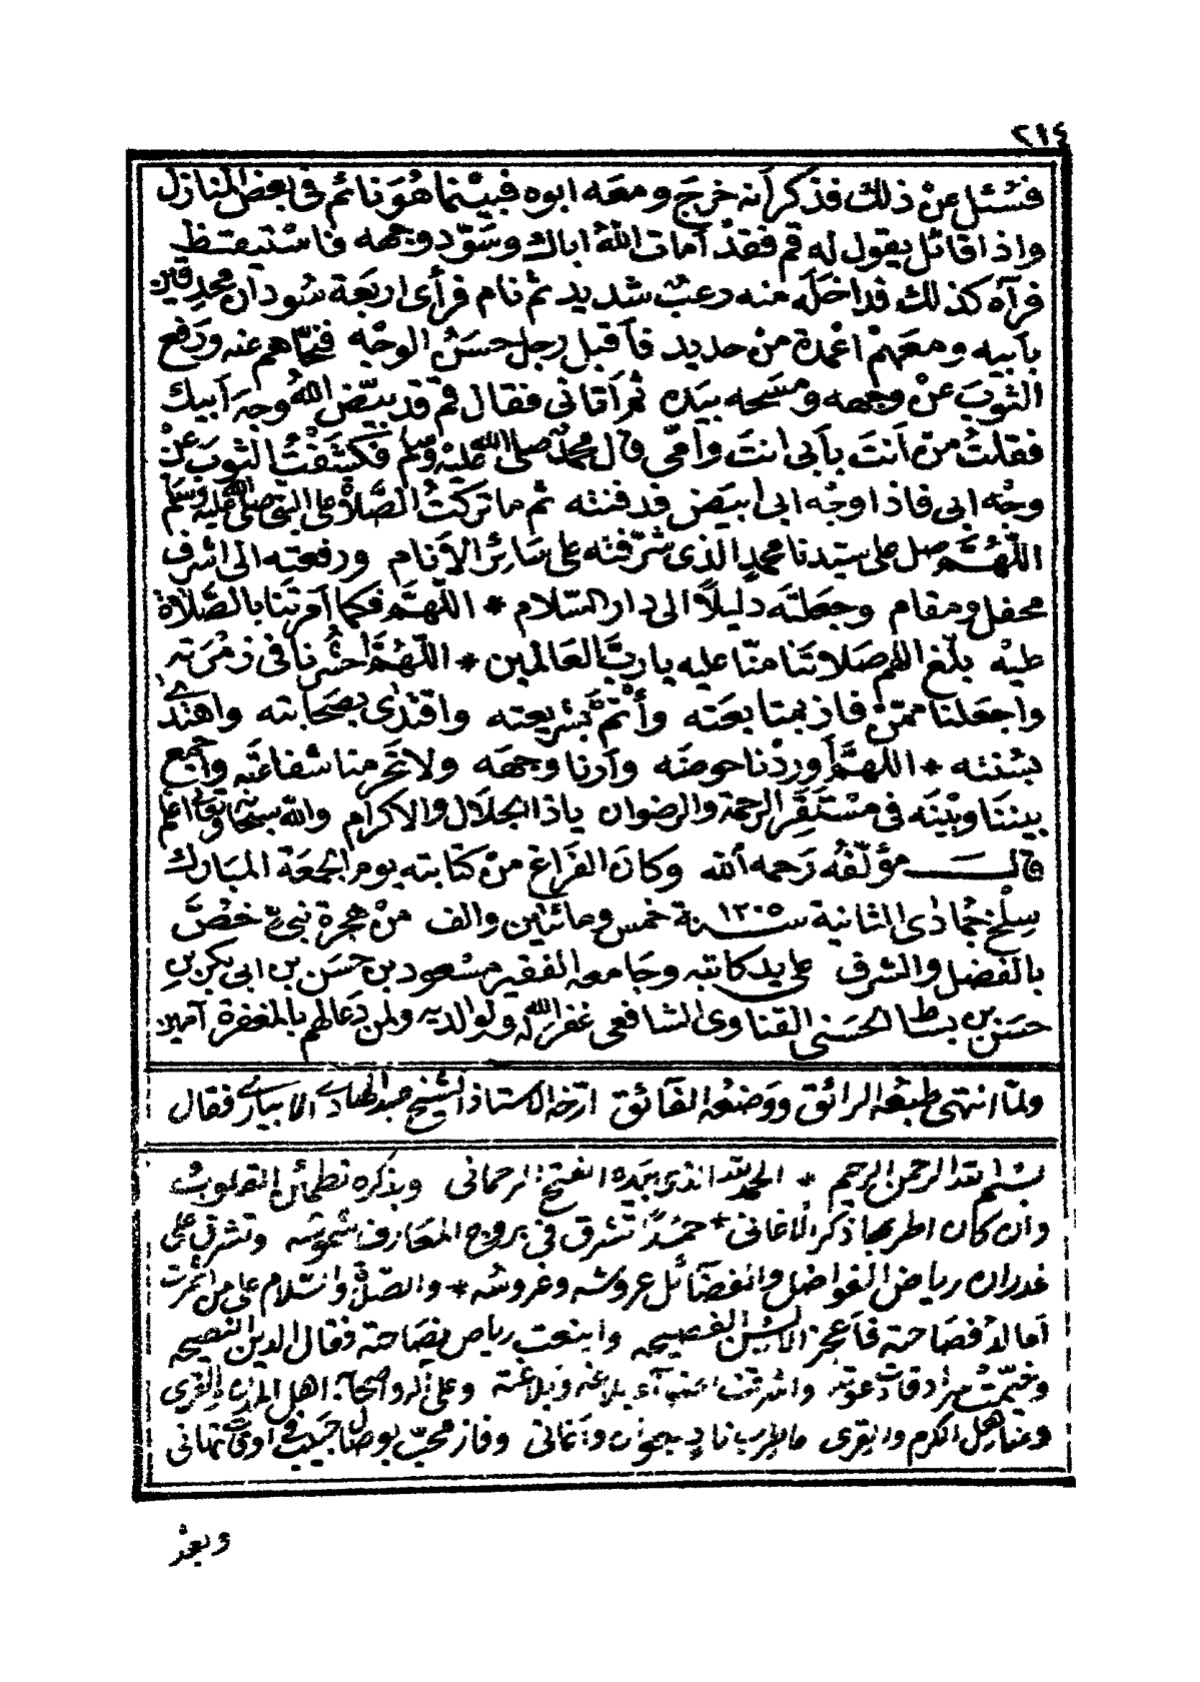 ٢١٤
فسُئل عنْ ذلك فذكر أنه خرجَ ومعَه ابوه فبيْنما هُوَ نائم فى بعض المنازل
واذا قائل يقول له قم فقدْ أماتَ اللهُ اباك وسَوّد وجهه فاسْتيقظ
فرآه كذلك فداخلَه منه رعبٌ شديد ثم نام فرأى اربعَة سُودان محدقين
بأبيه ومعَهمْ اعْمدة منْ حديد فأقبل رجل حسَنُ الوجْه فنحّاهم عنه ورَفع
الثوبَ عنْ وجهه ومسَحه بيَده ثم أتانى فقال قم قد بيّض اللهُ وجهَ أبيك
فقلتُ منْ اَنتَ بأبى انتَ وأمّى قال محمدٌ صلى الله عليْه وسلم فكشفْتُ الثوبَ عنْ
وجْه ابى فاذا وجْه ابى أبيَض فدفنته ثم ما تركتُ الصَّلاة على النبى صلى الله عليْه وسلم
اللّهُمَّ صل على سيّدنا محمدٍ الذى شرّفته على سَائِر الأنام ورفعته الى اشرف
محفل ومقام وجعَلتَه دليلاً الى دار السّلام * اللّهمَّ فكما أمرتنا بالصَّلاة
عليْه بلّغ اللهم صَلاتنا منّا عليه يا ربَّ العَالمين * اللّهُمَّ احشُرنا فى زمْرته
واجعَلنا ممّنْ فاز بمتابعَته وأتمّ بشريعته واقتدٰى بصحَابته واهتدٰى
بسُنته * اللّهمَّ أوردْنا حوضَه وأرنا وجهَه ولا تحرمنا شفاعتَه واجمع
بيننَا وبيْنَه فى مسْتقَرّ الرحمة والرضوان ياذا الجلال والاكرام والله سبحانه وتعالى اعلم
قالـــ مؤلّفه رَحمه الله وكانَ الفَراغ منْ كتابته يوم الجمعَة المبَارك
سلْخ جُمادى الثانية سـ١٢٠٥ـنة خمس ومائتين والف منْ هجرة نبىّ خُصَّ
بالفضل والشرف على يد كاتبه وجَامعه الفقير مسْعود بن حسَن بن ابى بكر بن
حسَن بن بسَط الحسَنى القناوى الشافعى غفر الله له ولوالديه ولمن دَعا لهم بالمغفرة آمين
ولمّا انتهى طبْعُه الرائق ووَضعُه الفائق ارّخه الاستاذ الشيخ عبد الهادى الابيارى فقال
بسْم الله الرحمن الرحيم * الحمد لله الذى بيَده الفتح الرحمانى وبذكره تطمئن القلوبُ
وان كان اطربها ذكر الاغانى * حمدًا تشرق فى بروج المعَارف شموسُه وتشرق على
غدران رياض الفواضل والفضآئل عروشه وغروسُه * والصّلٰوة والسّلام على من أثمرت
أمالدُ فصَاحته فأعجز الالسُن الفصيحه واينعت رياض نصَاحته فقال الدين النصيحه
وخيّمتْ سرادقات دعوته واشرقت اضوآء بلاغه وبلاغته وعلى آله واصحابه اهل المدن والقرى
ومناهل الكرم والقرى ما اطرب ناد بيمان وأغانى وفاز محبّ بوصال حبيب فى اوقات تهانى
وبعد